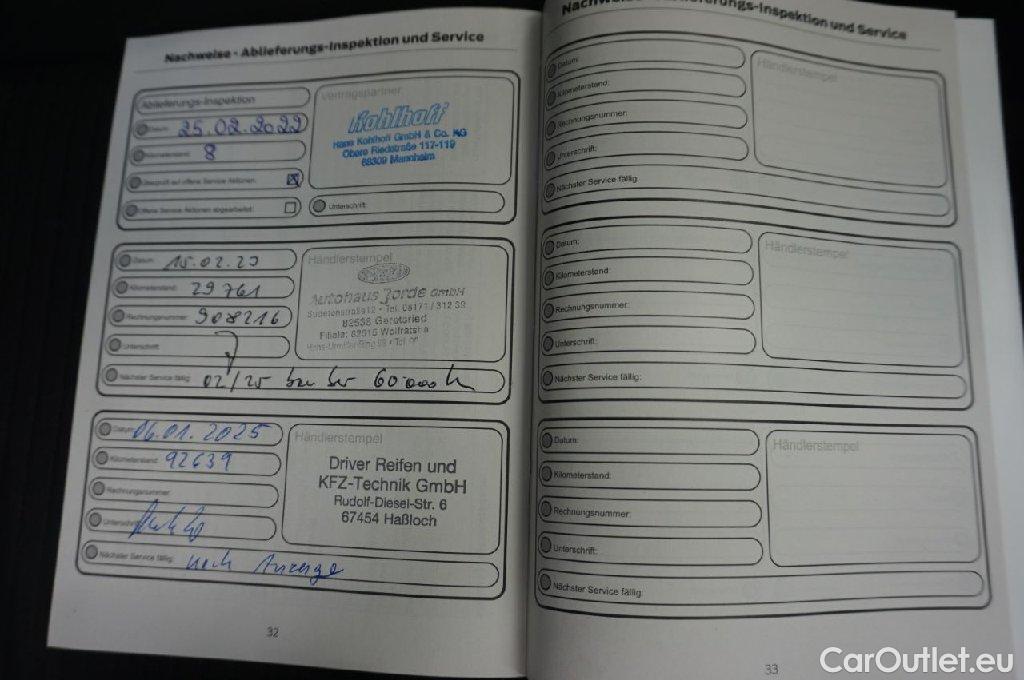 Nachweise - Ablieferungs-Inspektion und Service
Ablieferungs-Inspektion
Datum: 25.02.2022
Kilometerstand: 8
Überprüft auf offene Service Aktionen:
Offene Service Aktionen abgearbeitet:
Vertragspartner
Kohlhoff
Hans Kohlhoff GmbH & Co. KG
Obere Riedstraße 117-119
68309 Mannheim
Unterschrift:
Datum: 15.02.23
Kilometerstand: 29761
Rechnungsnummer: 908216
Unterschrift:
Nächster Service fällig: 02/25 bzw bei 60000k
Händlerstempel
Autohaus Jorde GmbH
82538 Geretsried
Filiale: 82515 Wolfratsha
Datum: 06.01.2025
Kilometerstand: 92639
Rechnungsnummer:
Unterschrift:
Nächster Service fällig: nach Anzeige
Händlerstempel
Driver Reifen und
KFZ-Technik GmbH
Rudolf-Diesel-Str. 6
67454 Haßloch
32
Nachweise - Ablieferungs-Inspektion und Service
Datum:
Kilometerstand:
Rechnungsnummer:
Unterschrift:
Nächster Service fällig:
Händlerstempel
Datum:
Kilometerstand:
Rechnungsnummer:
Unterschrift:
Nächster Service fällig:
Händlerstempel
Datum:
Kilometerstand:
Rechnungsnummer:
Unterschrift:
Nächster Service fällig:
Händlerstempel
33
CarOutlet.eu